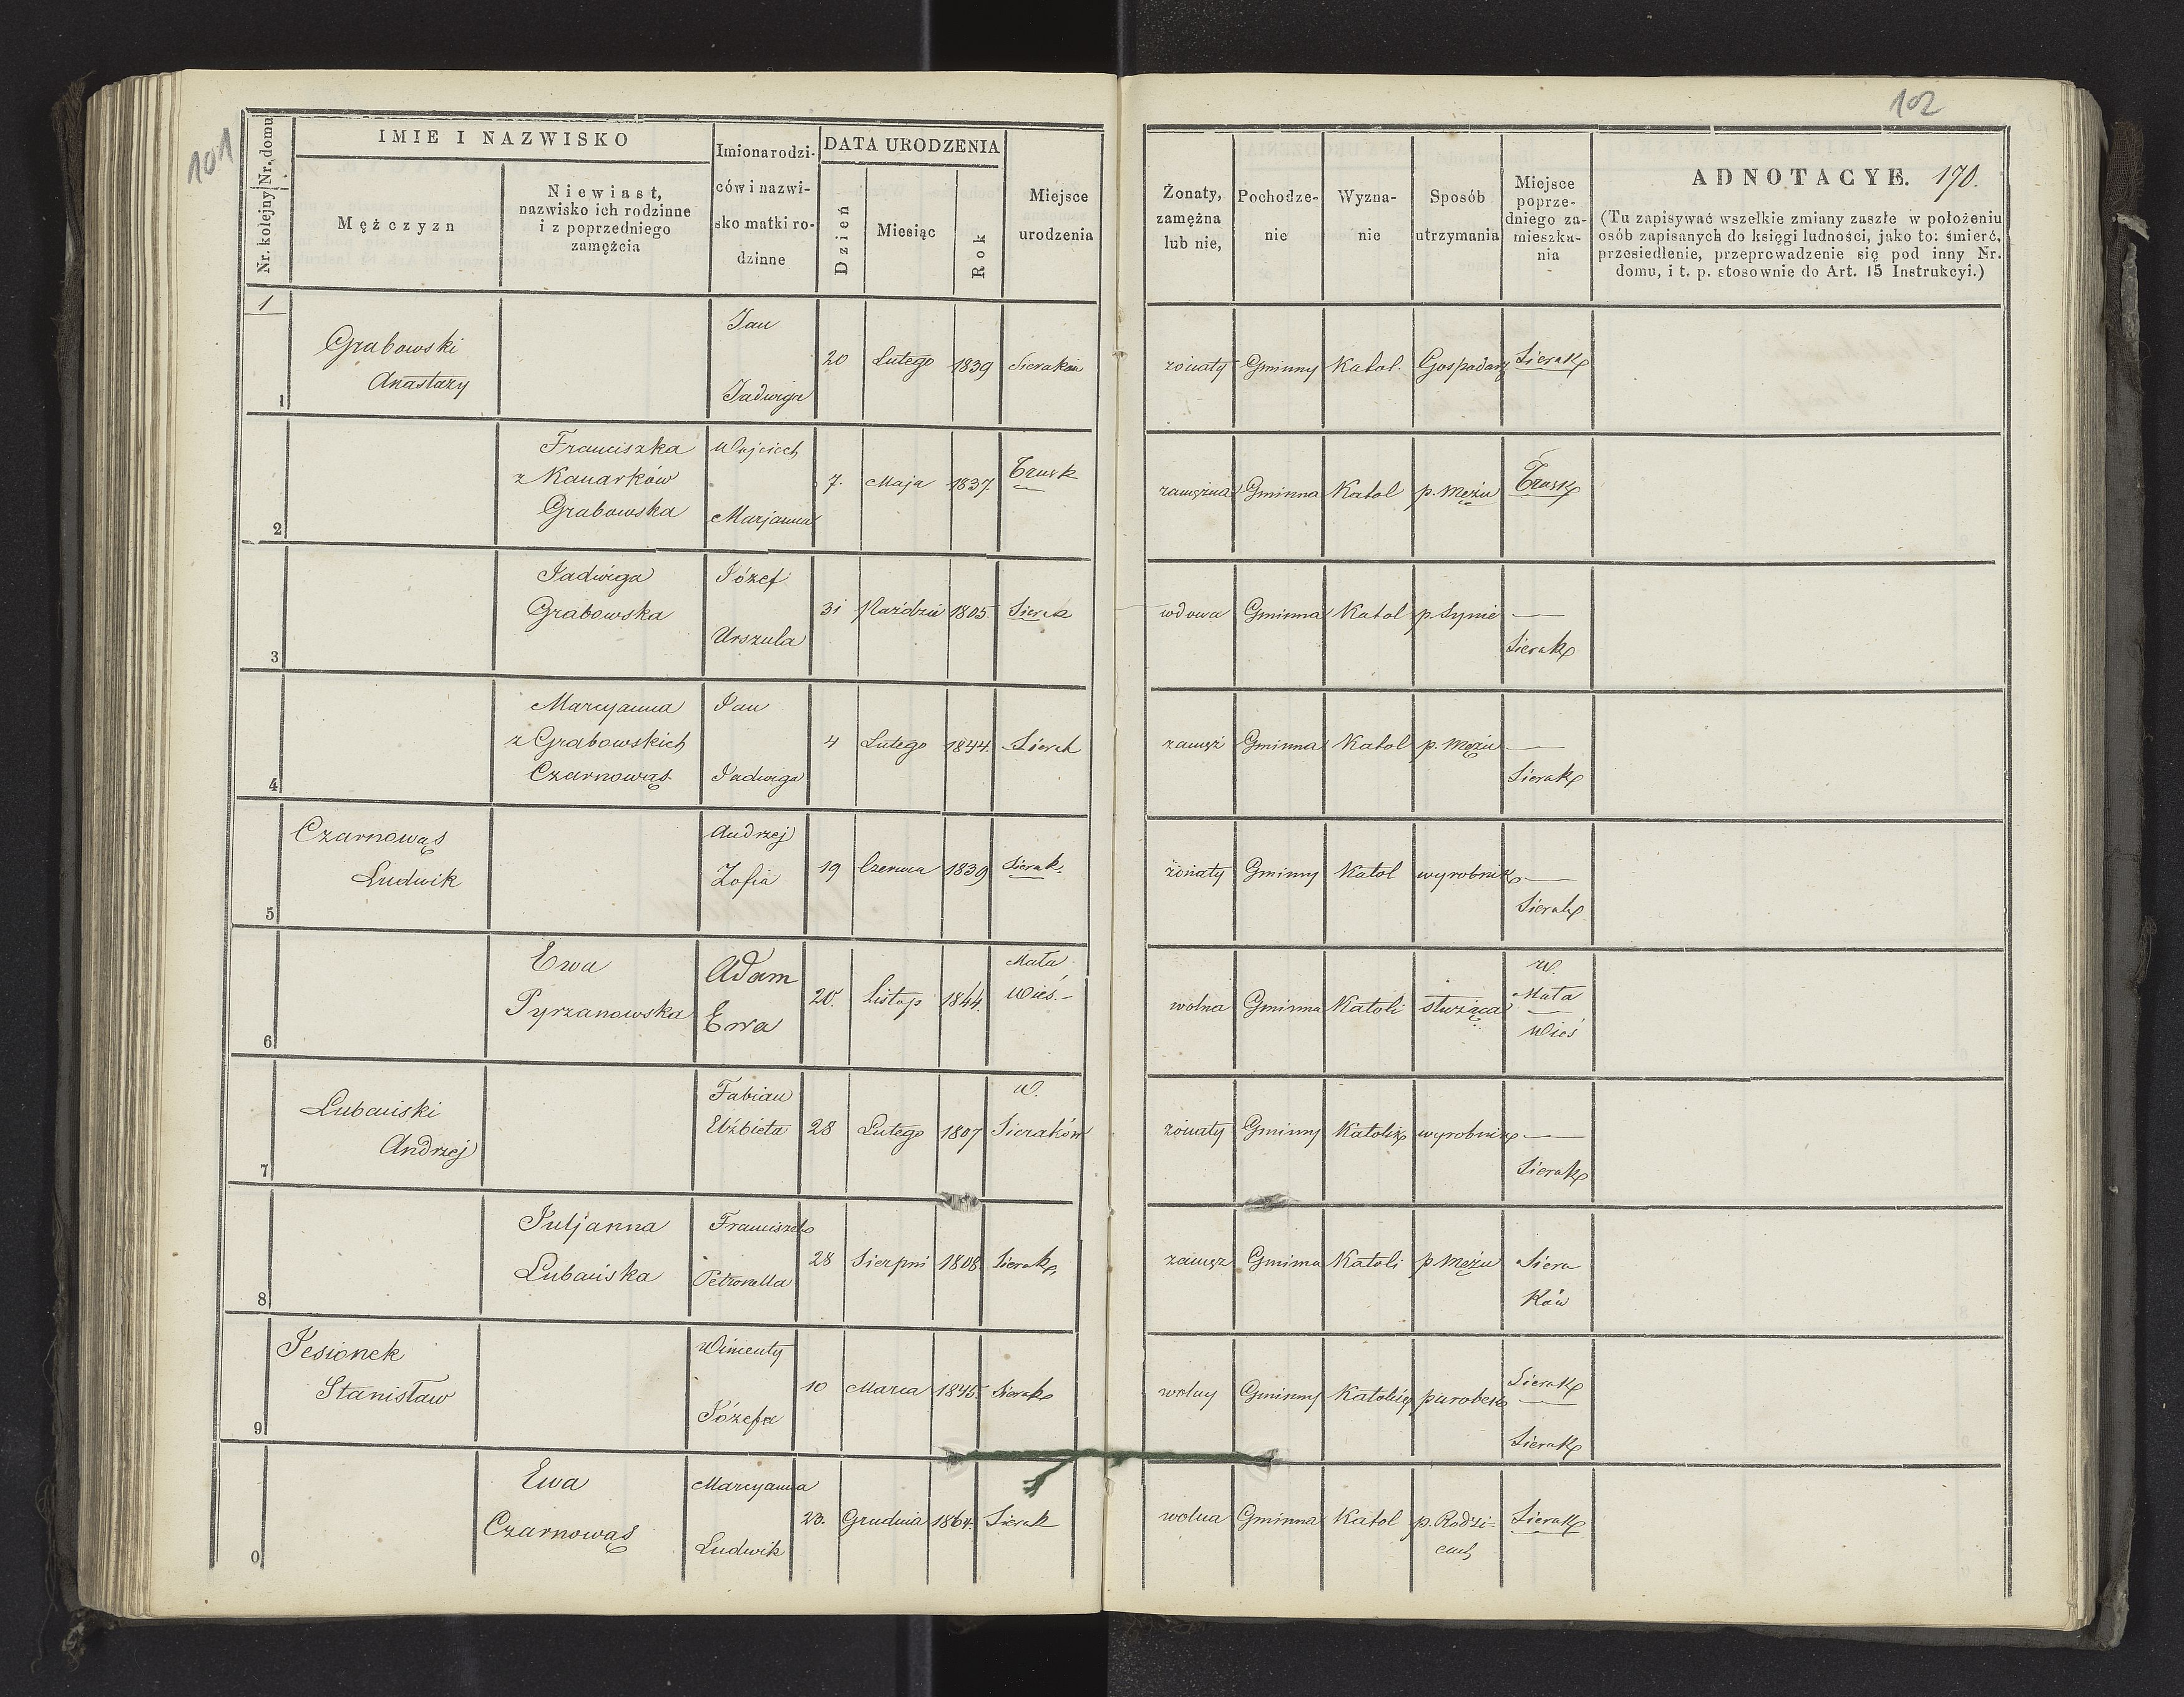 101
102
Nr. kolejny Nr. domu
IMIE I NAZWISKO
Mężczyzn
Niewiast,
nazwisko ich rodzinne
i z poprzedniego
zamężcia
Imiona rodzi-
ców i nazwi-
sko matki ro-
dzinne
DATA URODZENIA
Dzień
Miesiąc
Rok
Miejsce
urodzenia
Żonaty,
zamężna
lub nie,
Pochodze-
nie
Wyzna-
nie
Sposób
utrzymania
Miejsce
poprze-
dniego za-
mieszka-
nia
ADNOTACYE. 170.
(Tu zapisywać wszelkie zmiany zaszłe w położeniu
osób zapisanych do księgi ludności, jako to: śmierć,
przesiedlenie, przeprowadzenie się pod inny Nr.
domu, i t. p. stosownie do Art. 15 Instrukcyi.)
1
Jan
Grabowski
Anastazy
20 Lutego 1839 Sieraków żonaty Gminny Katol. Gospodarz Sierak
Jadwiga
1
Franciszka
z Kanarków
Grabowska
Wojciech
Marjanna
7. Maja 1837. Trusk zamężna Gminna Katol p. Mężu Trusk
2
Jadwiga
Grabowska
Józef
Urszula
31 Paździe 1805. Sierak wdowa Gminna Katol p Synie —
Sierak
3
Marcyanna
z Grabowskich
Czarnowąs
Jan
Jadwiga
4 Lutego 1844. Sierak zamęż Gminna Katol p. Mężu —
Sierak
4
Czarnowąs
Ludwik
Andrzej
Zofia
19 Czerwca 1839 Sierak. żonaty Gminny Katol wyrobnik —
Sierak
5
Ewa
Pyrzanowska
Adam
Ewa
20. Listop 1844. Mała
Wieś.- wolna Gminna Katoli służąca w.
Mała
Wieś
6
Lubański
Andrzej
Fabian
Elżbieta
28 Lutego 1807 w.
Sieraków żonaty Gminny Katolik wyrobnik —
Sierak
7
Juljanna
Lubańska
Franciszek
Petronella
28 Sierpni 1808 Sierak zamęż Gminna Katoli p Mężu Siera
ków
8
Jesionek
Stanisław
Winienty
Józefa
10 Marca 1845. Sierak wolny Gminny Katolik parobek Sierak
Sierak
9
Ewa
Czarnowąs
Marcyanna
Ludwik
23. Grudnia 1864. Sierak wolna Gminna Katol p. Rodzi=
cach Sierak
0